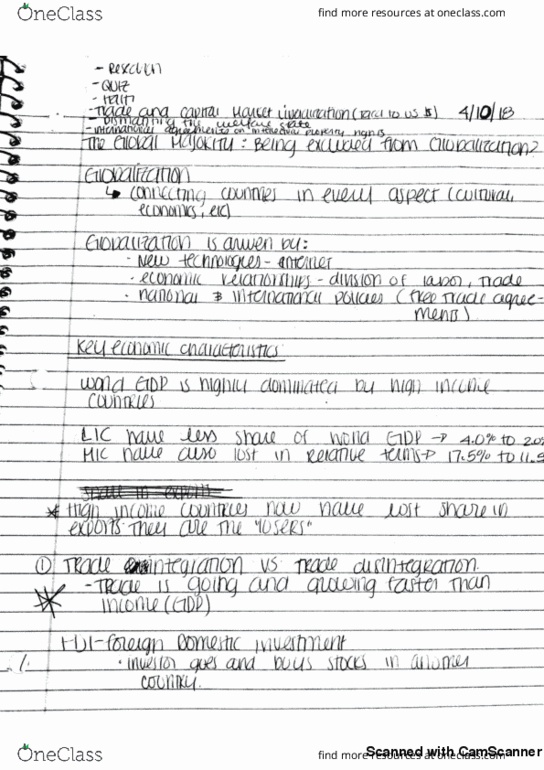 OneClass
find more resources at oneclass.com
- Research
- Quiz
- Haiti
- Trade and capital Market Liberalization (to US $) 4/10/18
- Dismantling the welfare state
- International agreements on intellectual property rights
The Global Majority: Being excluded from Globalization?
Globalization
↳ connecting countries in every aspect (cultural,
economics, etc)
Globalization is driven by:
· New technologies - internet
· economic relationships - division of labor, trade
· national & international policies (free trade agree-
ments)
Key economic characteristics
World GDP is highly dominated by high income
countries
LIC have less share of world GDP → 4.0% to 2.0%
MIC have also lost in relative terms → 17.5% to 11.5
* High income countries now have lost share in
exports. They are the "losers"
① Trade integration vs trade disintegration
- Trade is going and growing faster than
income (GDP)
FDI - foreign Domestic investment
· investor goes and buys stocks in another
country.
OneClass
find more resources at oneclass.com
Scanned with CamScanner